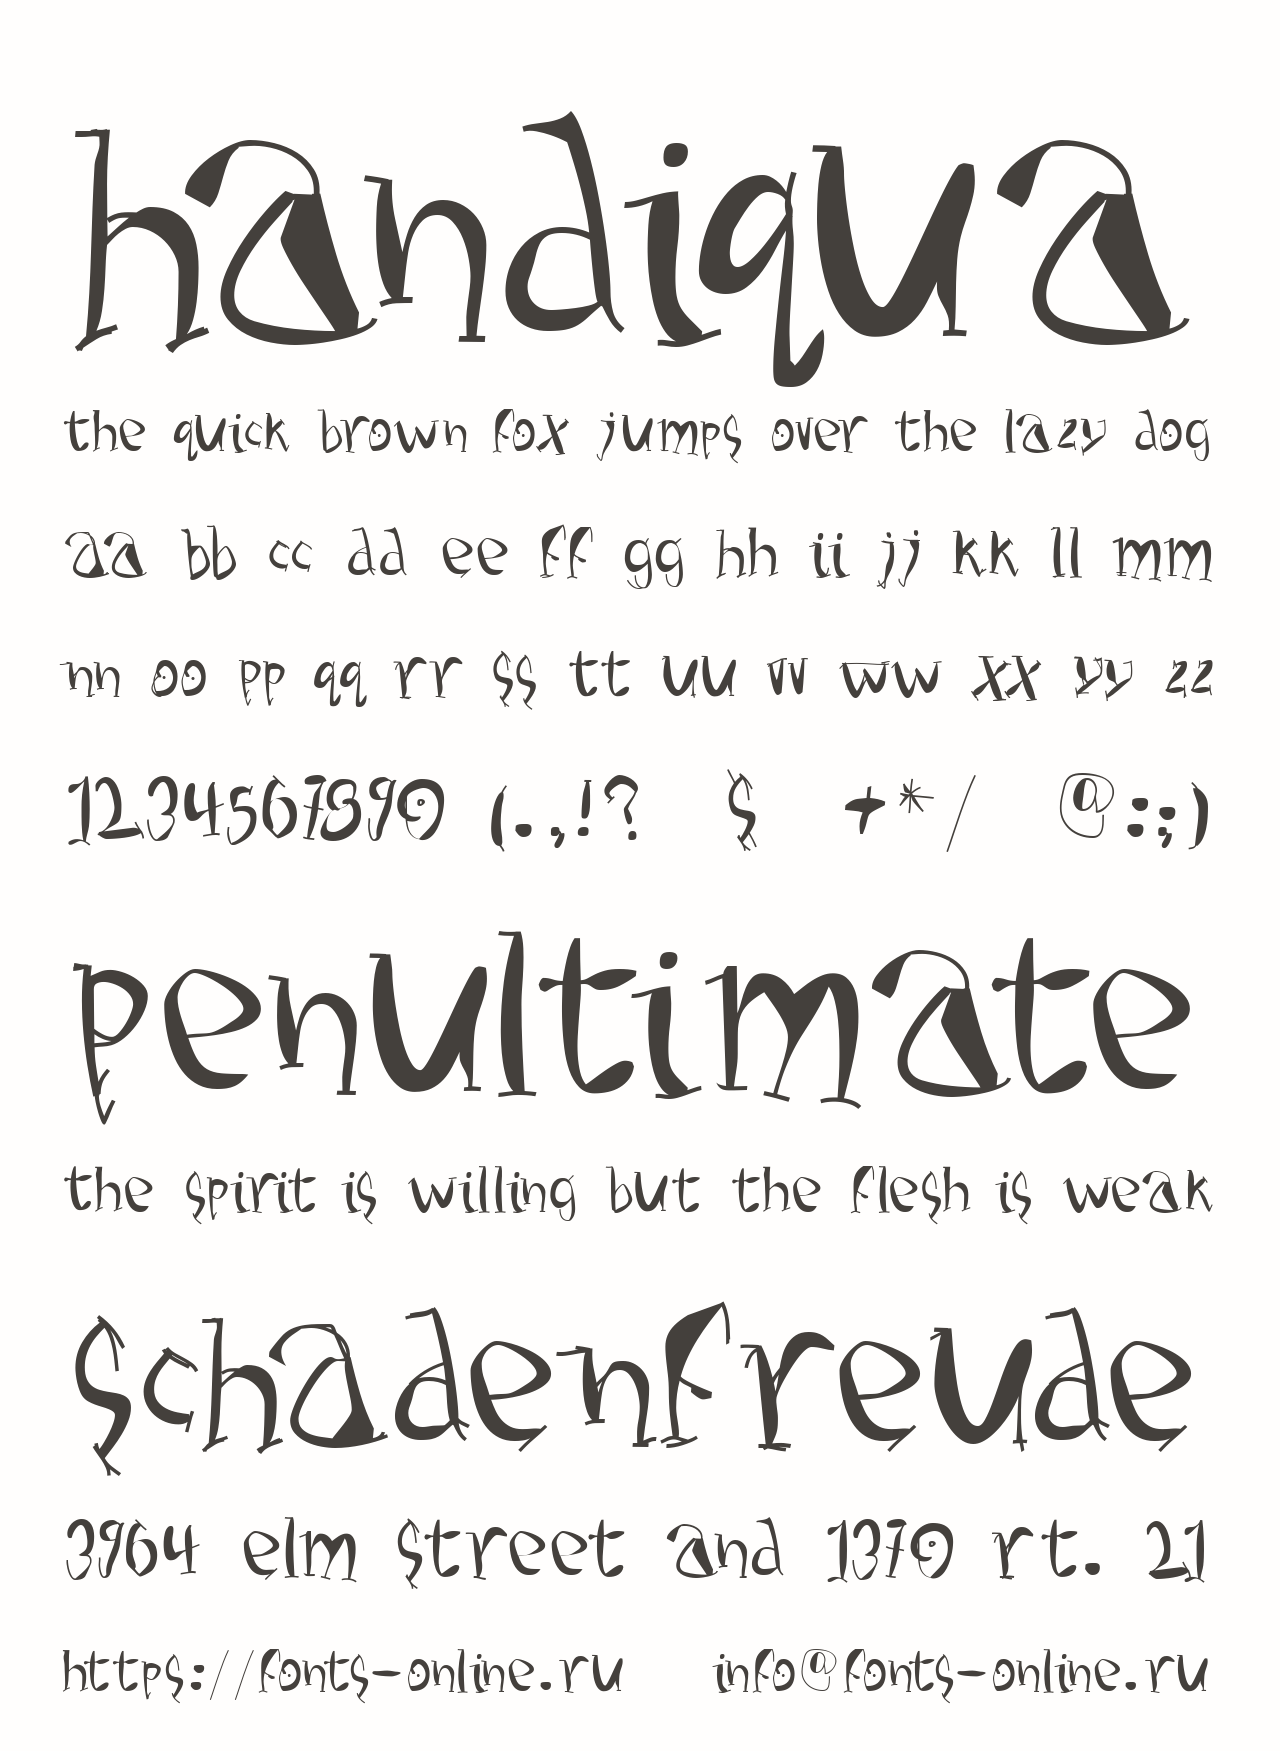 handiqua
the quick brown fox jumps over the lazy dog
aa bb cc dd ee ff gg hh ii jj kk ll mm
nn oo pp qq rr ss tt uu vv ww xx yy zz
1234567890 (.,!? $ +*/ @:;)
penultimate
the spirit is willing but the flesh is weak
schadenfreude
3964 elm street and 1370 rt. 21
https://fonts-online.ru info@fonts-online.ru